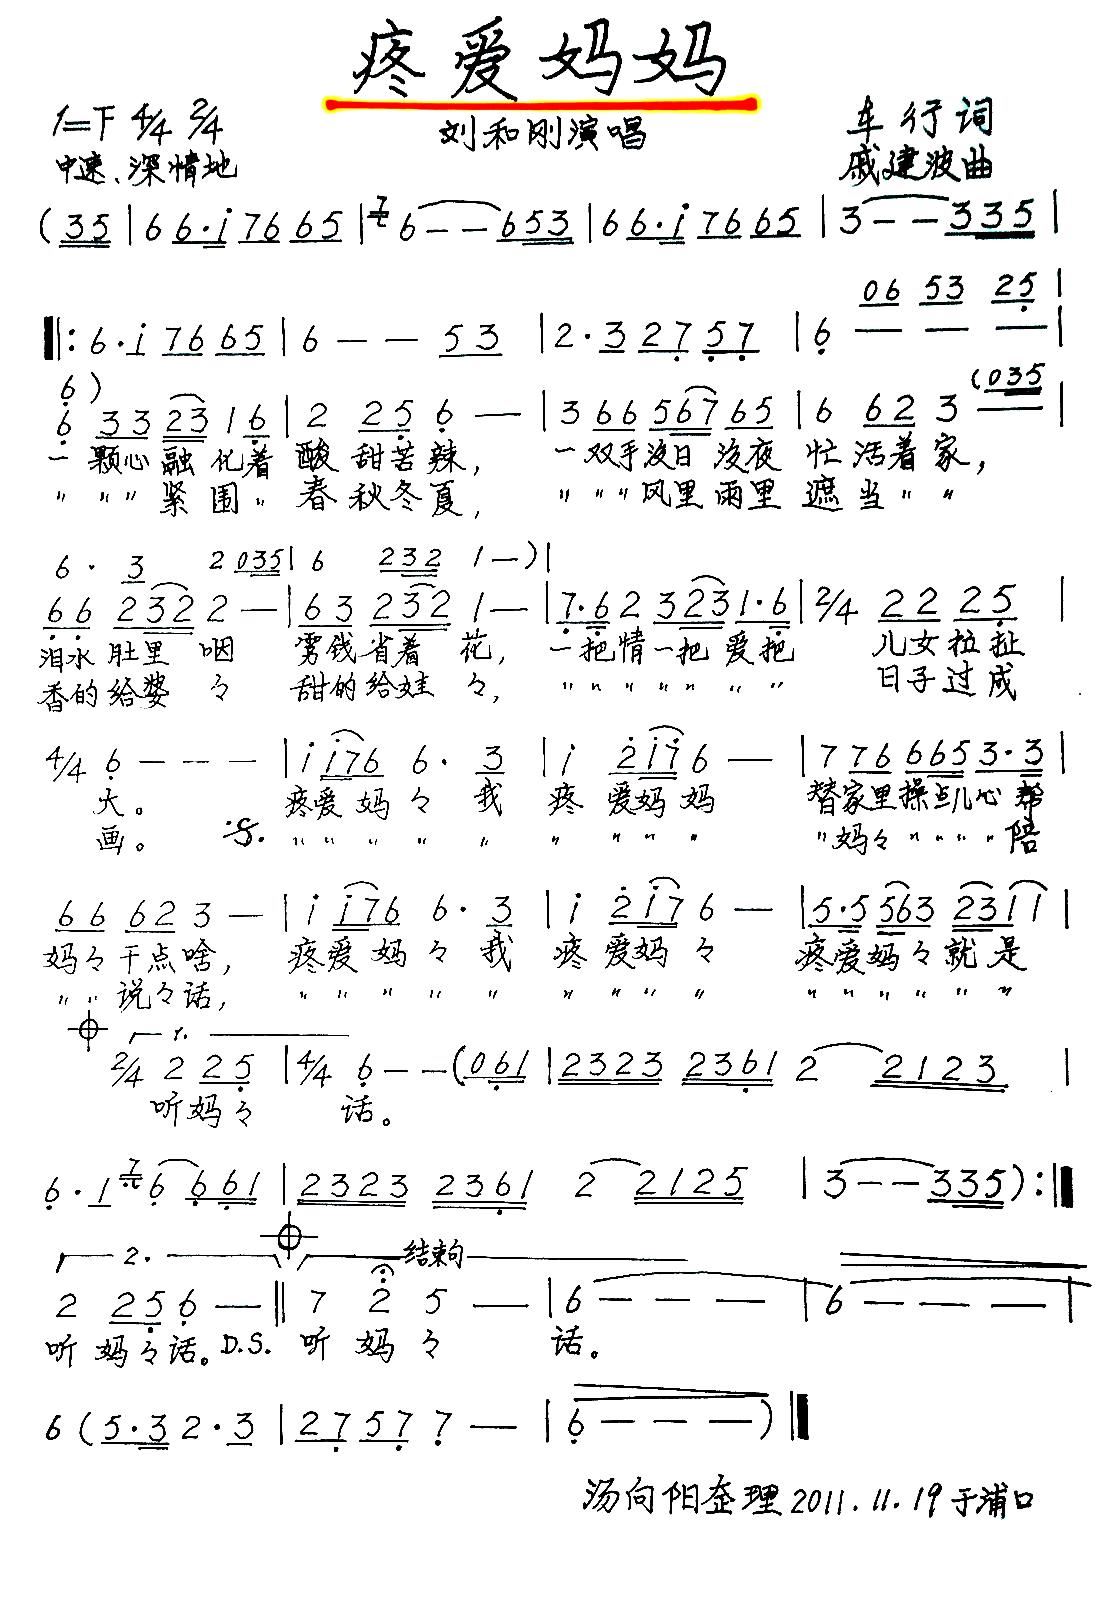 疼爱妈妈
1=F 4/4 2/4
刘和刚演唱
车行词
中速、深情地
戚建波曲
(35 | 66·i 7665 | 6 - - 653 | 66·i 7665 | 3 - - 335 |
06 53 25 |
‖: 6·i 7665 | 6 - - 53 | 2·3 27 57 | 6 - - - |
6) (035
6 33 23 16 | 2 25 6 - | 3 66 567 65 | 6 62 3 - |
一颗心融化着酸甜苦辣, 一双手没日没夜忙活着家,
〃〃〃紧围〃春秋冬夏, 〃〃〃风里雨里遮当〃〃
6· 3 2 035 | 6 232 1 - ) |
66 232 2 - | 63 232 1 - | 7·6 2 323 1·6 | 2/4 22 25 |
泪水肚里咽 雾钱省着花, 一把情一把爱把 儿女拉扯
香的给婆々 甜的给娃々, 〃〃〃〃〃〃 日子过成
4/4 6 - - - | i i76 6· 3 | i 2i7 6 - | 7 776 665 3·3 |
大。 疼爱妈々我 疼爱妈妈 替家里操点儿心帮
画。 :S. 〃〃〃〃〃 〃〃〃〃 〃妈々〃〃〃〃陪
66 62 3 - | i i76 6· 3 | i 2i7 6 - | 5·5 563 23 11 |
妈々干点啥, 疼爱妈々我 疼爱妈々 疼爱妈々就是
〃〃说々话, 〃〃〃〃〃 〃〃〃〃 〃〃〃〃〃〃
1.
2/4 2 25 | 4/4 6 - - (061 | 2323 2361 2 2123 |
听妈々 话。
6·1 6 661 | 2323 2361 2 2125 | 3 - - 335) :‖
2. 结束句
2 25 6 - ‖ 7 2 5 - | 6 - - - | 6 - - - |
听妈々话。D.S. 听妈々 话。
6 (5·3 2·3 | 27 57 7 - | 6 - - - ) ‖
汤向阳整理 2011.11.19 于浦口